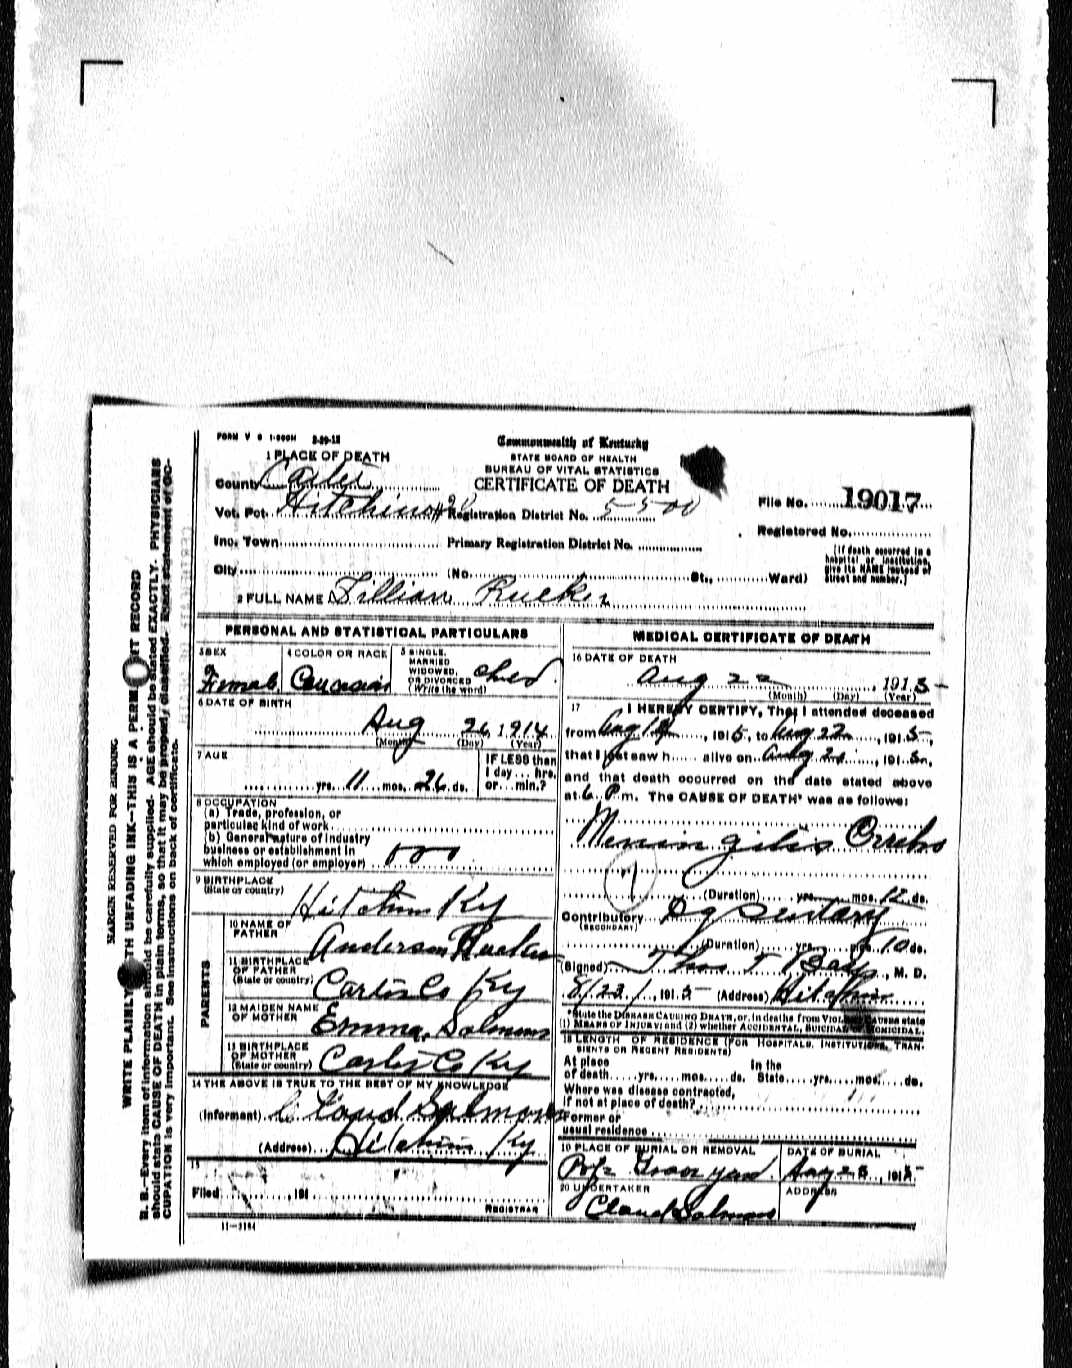 FORM V S 1-500M 3-29-13
Commonwealth of Kentucky
STATE BOARD OF HEALTH
BUREAU OF VITAL STATISTICS
CERTIFICATE OF DEATH
1 PLACE OF DEATH
County Carter
Vot. Pct. Hitchins Registration District No. 5500
File No. 19017
Registered No.
Inc. Town Primary Registration District No.
City (No. St., Ward)
(If death occurred in a hospital or institution, give its NAME instead of street and number.)
2 FULL NAME Lillian Rucker
PERSONAL AND STATISTICAL PARTICULARS
3 SEX
Female
4 COLOR OR RACE
Caucasian
5 SINGLE, MARRIED WIDOWED, OR DIVORCED (Write the word)
6 DATE OF BIRTH
Aug 26, 1914
(Month) (Day) (Year)
7 AGE
yrs. 11 mos. 26 ds.
IF LESS than 1 day... hrs. or... min.?
8 OCCUPATION
(a) Trade, profession, or
particular kind of work
b) General nature of industry
business or establishment in
which employed (or employer)
9 BIRTHPLACE
(State or country)
Hitchins Ky
PARENTS
10 NAME OF FATHER
Anderson Rucker
11 BIRTHPLACE OF FATHER
(State or country)
Carter Co Ky
12 MAIDEN NAME OF MOTHER
Emma Salmons
13 BIRTHPLACE OF MOTHER
(State or country)
Carter Co Ky
14 THE ABOVE IS TRUE TO THE BEST OF MY KNOWLEDGE
(Informant) Claud Salmons
(Address) Hitchins Ky
15
Filed , 191
REGISTRAR
11-3184
MEDICAL CERTIFICATE OF DEATH
16 DATE OF DEATH
Aug 22, 1915
(Month) (Day) (Year)
17 I HEREBY CERTIFY, That I attended deceased
from Aug , 1915, to Aug 22, 1915,
that I last saw h alive on Aug , 1915,
and that death occurred on the date stated above
at 6 P m. The CAUSE OF DEATH* was as follows:
(Duration) yrs. mos. 12 ds.
Contributory
(SECONDARY)
(Duration) yrs. mos. 10 ds.
(Signed) Thos T , M. D.
8/23/, 1915 (Address) Hitchins
*State the DISEASE CAUSING DEATH, or, in deaths from VIOLENT CAUSES state
(1) MEANS OF INJURY; and (2) whether ACCIDENTAL, SUICIDAL or HOMICIDAL.
18 LENGTH OF RESIDENCE (FOR HOSPITALS, INSTITUTIONS, TRANSIENTS OR RECENT RESIDENTS)
At place In the
of death yrs. mos. ds. State yrs. mos. ds.
Where was disease contracted,
if not at place of death?
Former or
usual residence
19 PLACE OF BURIAL OR REMOVAL
DATE OF BURIAL
Aug 23, 1915
20 UNDERTAKER
Claud Salmons
ADDRESS
MARGIN RESERVED FOR BINDING
WRITE PLAINLY WITH UNFADING INK—THIS IS A PERMANENT RECORD
N. B.—Every item of information should be carefully supplied. AGE should be stated EXACTLY. PHYSICIANS
should state CAUSE OF DEATH in plain terms, so that it may be properly classified. Exact statement of OC-
CUPATION is very important. See instructions on back of certificate.